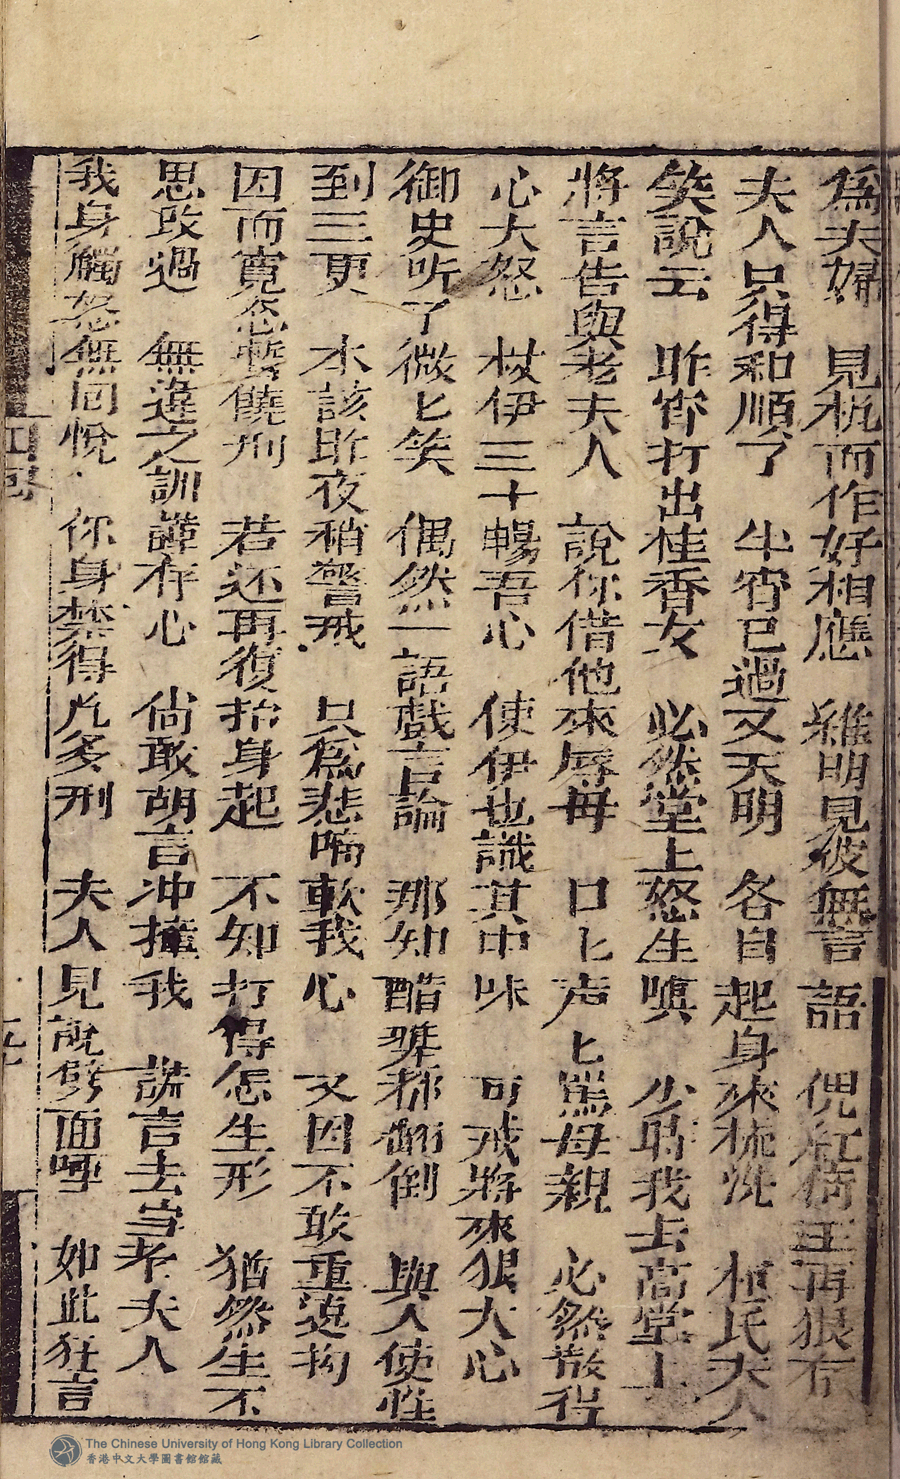 為夫婦　見机而作好相應　雖明見彼無言語　偎紅倚玉再狠有
夫人只得和順了　半宵已過又天明　各自起身來梳洗　桓氏夫人
笑說云　昨宵打出桂香女　必然堂上怒生嗔　少時我去高堂上
將言告與老夫人　說你借他來辱母　口匕声匕罵母親　必然散得
心大怒　杖伊三十暢吾心　使伊也識其中味　可戒將來狠大心
御史听了微匕笑　偶然一語戲言論　那知醋甕都翻倒　與人使性
到三更　本該昨夜稍警戒　只為悲啼軟我心　又因不敢重違拘
因而寬恣暫饒刑　若还再復抬身起　不知打得怎生形　猶然生不
思改過　無違之訓謹存心　倘敢胡言冲撞我　謊言去告老夫人
我身觸怒無回悅　你身禁得几多刑　夫人見說劈面啐　如此狂言
The Chinese University of Hong Kong Library Collection
香港中文大學圖書館館藏